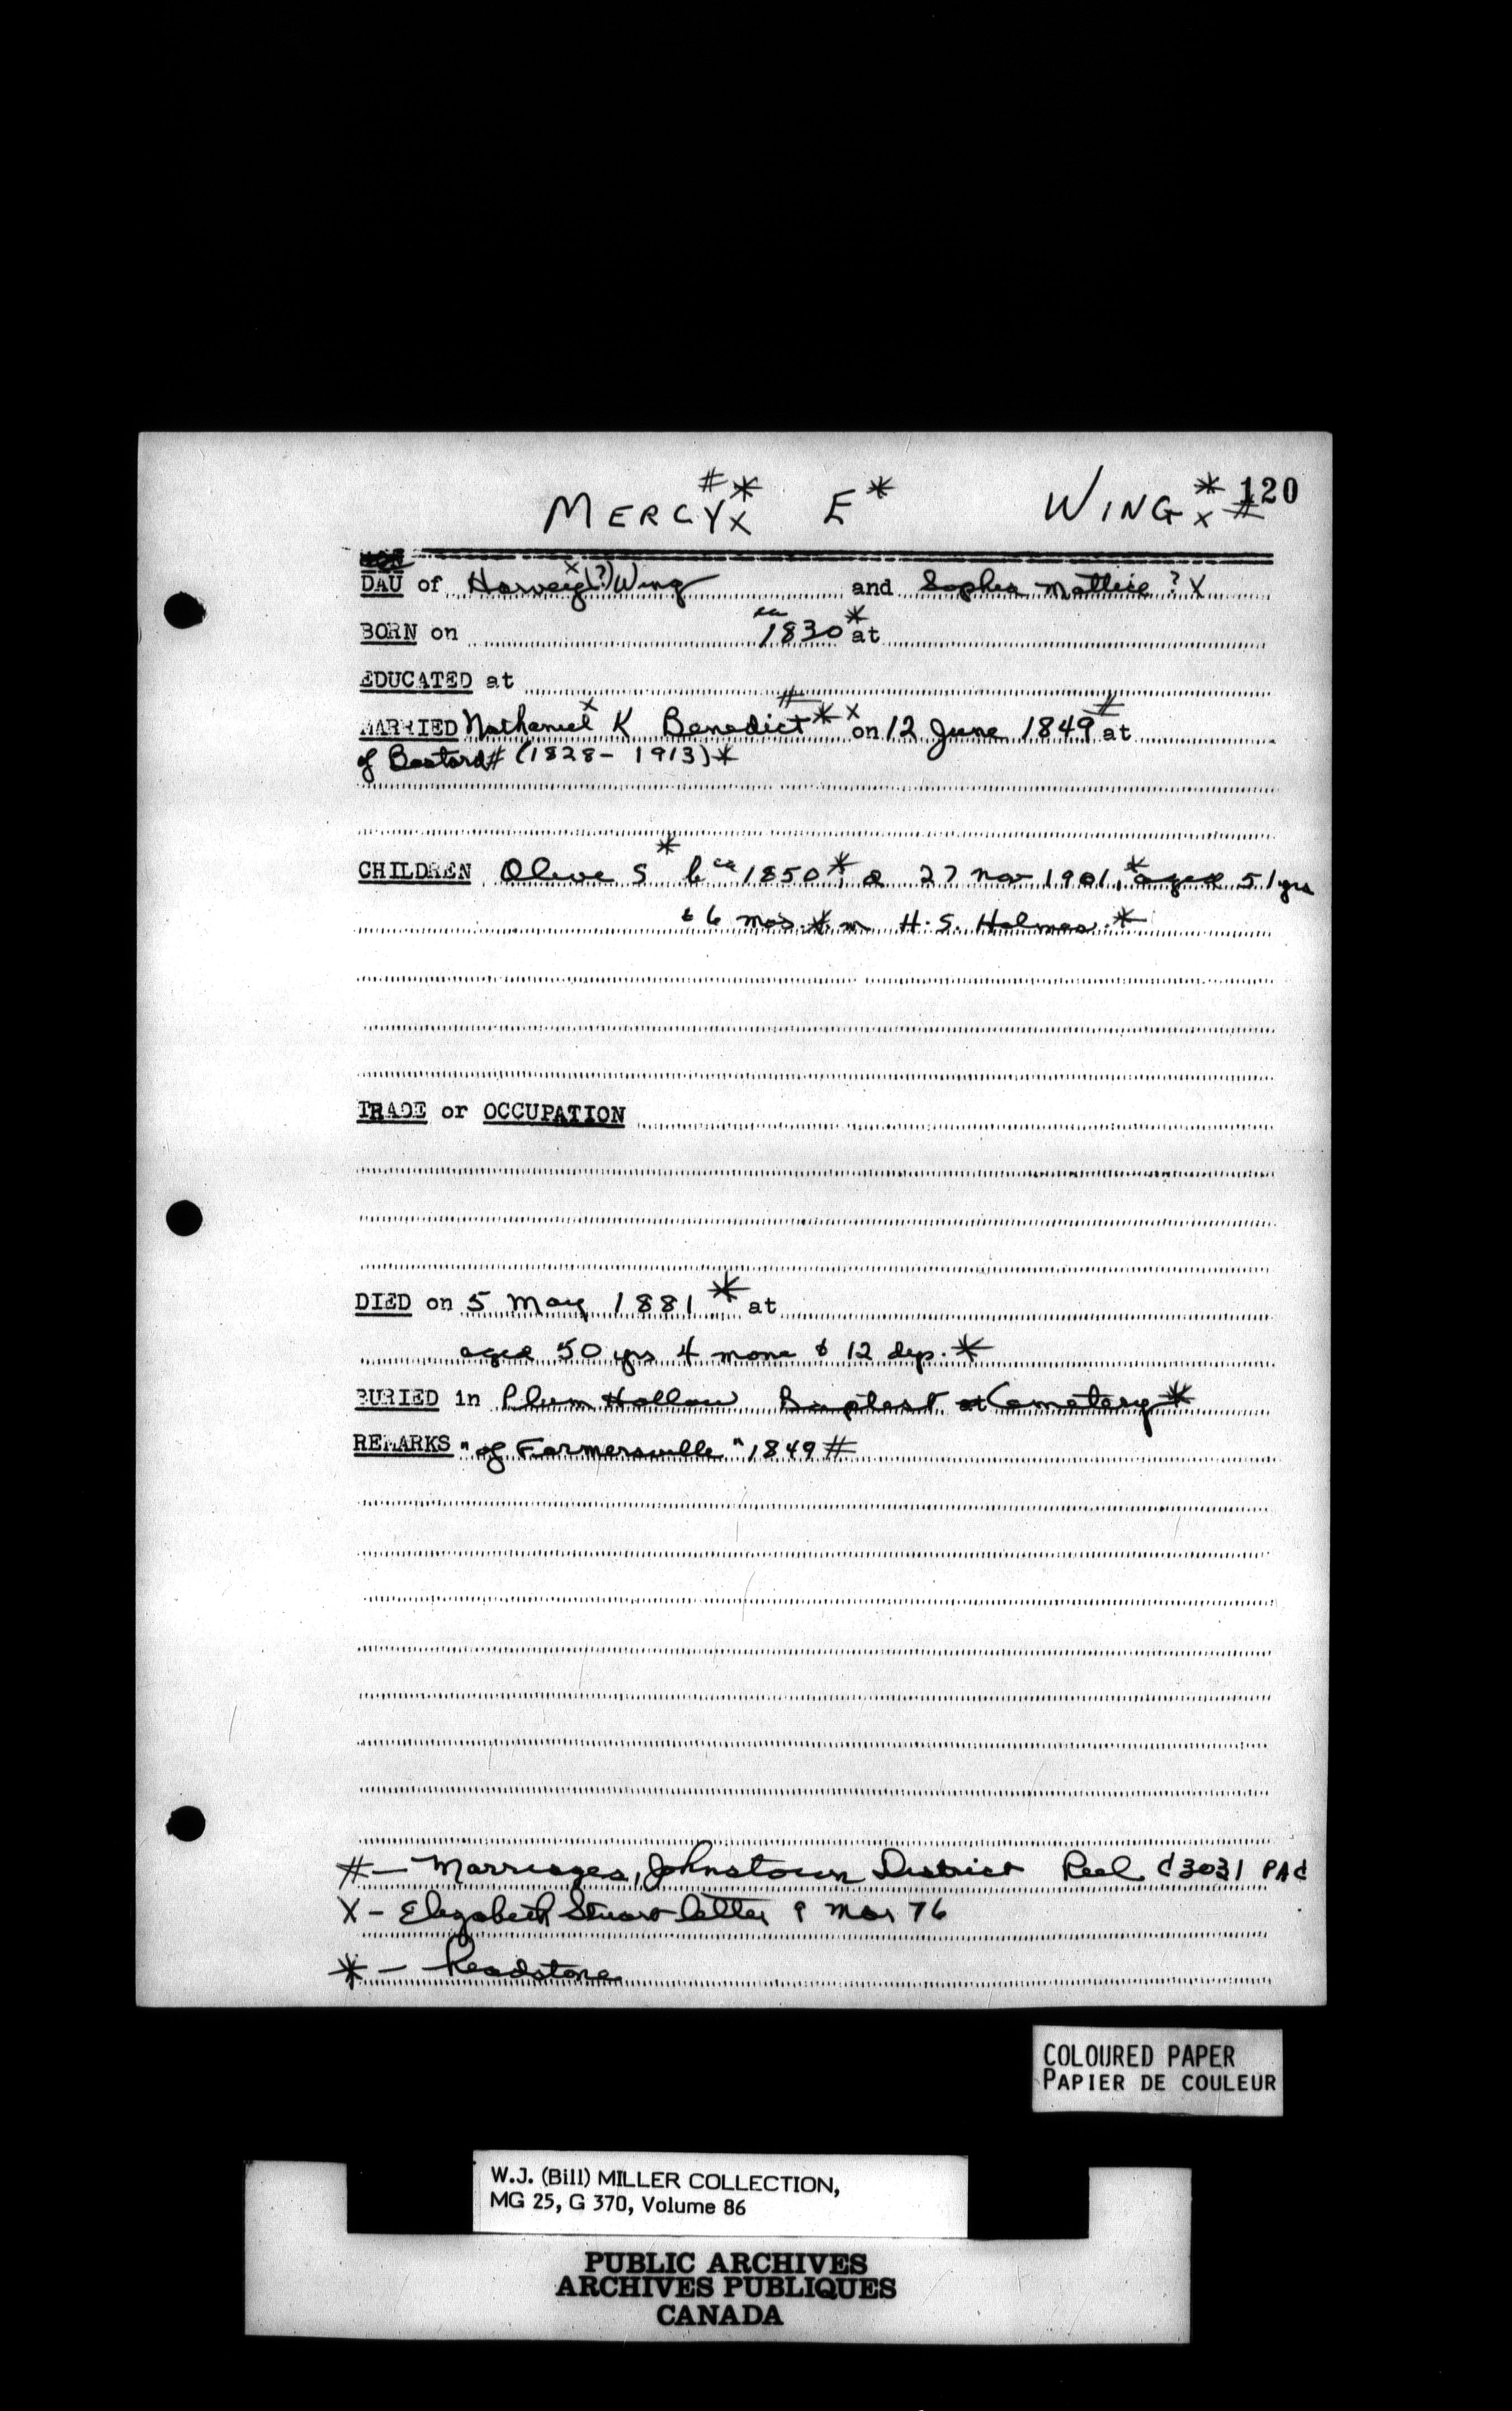 120
MERCY #*x E* WING *x#
DAU of Harvey x (?) Wing and Sophia Mattice ? X
BORN on ca 1830 * at
EDUCATED at
MARRIED Nathaniel x K Benedict # * x on 12 June 1849 # at
of Bastard # (1828 - 1913) *
CHILDREN Olive S * b ca 1850 *, d 27 Nov 1901, * aged 51 yrs
& 6 mos. * m H. S. Holmes. *
TRADE or OCCUPATION
DIED on 5 May 1881 * at
aged 50 yrs 4 mons & 12 dys. *
BURIED in Plum Hollow Baptist at Cemetery *
REMARKS "of Farmersville" 1849 #
# - Marriages, Johnstown District Reel C3031 PAC
X - Elizabeth Stuart letter 9 Mar 76
* - headstone
COLOURED PAPER
PAPIER DE COULEUR
W.J. (Bill) MILLER COLLECTION,
MG 25, G 370, Volume 86
PUBLIC ARCHIVES
ARCHIVES PUBLIQUES
CANADA